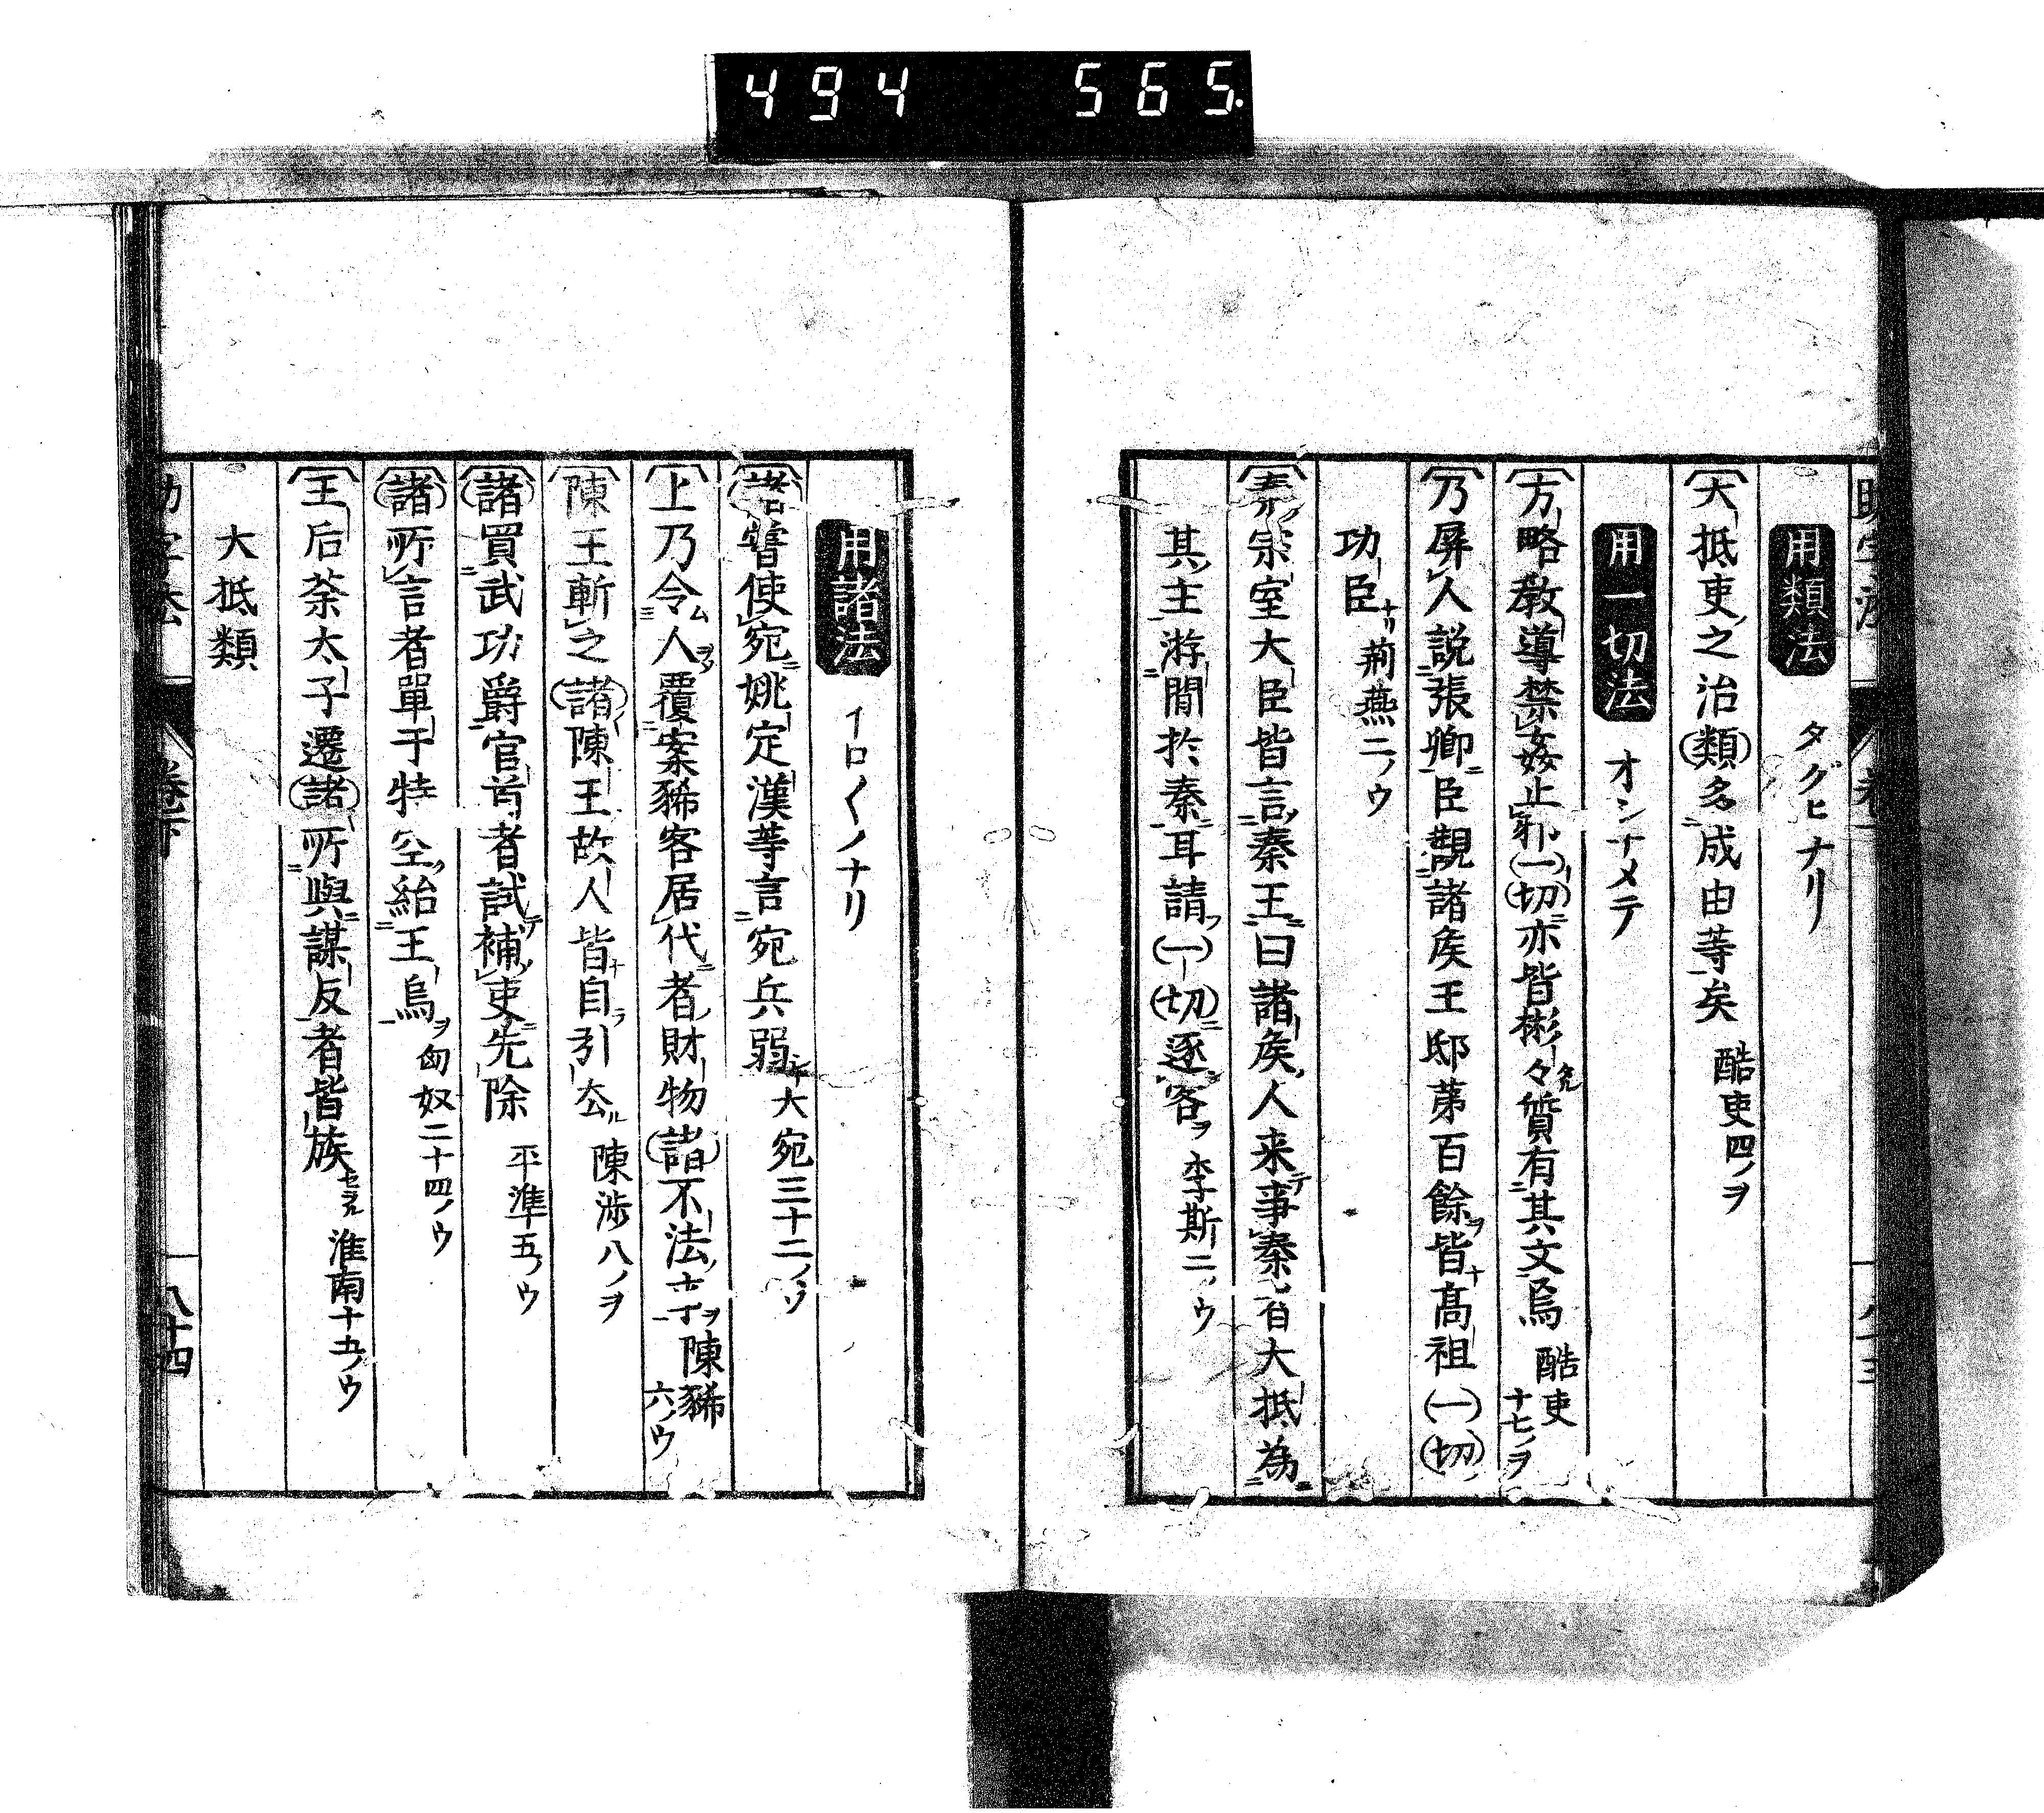 494 565
用類法 タグヒナリ
大抵吏之治類多成由等矣 酷吏四ノヲ
用一切法 オシナメテ
方略教導禁姦止邪一切亦皆彬々質有其文焉 酷吏十七ノヲ
乃屏人説張卿臣觀諸矦王邸苐百餘皆髙祖一切
功臣 荊燕二ノウ
秦宗室大臣皆言秦王曰諸矦人来事秦者大抵為
其主游間於秦耳請一切逐客 李斯二ノウ
用諸法 イロ〱ノナリ
諸嘗使宛姚定漢等言宛兵弱 大宛三十二ノヲ
上乃令人覆案豨客居代者財物諸不法事 陳豨六ノウ
陳王斬之諸陳王故人皆自引去 陳渉八ノヲ
諸買武功爵官首者試補吏先除 平準五ノウ
諸所言者單于特空紿王烏 匈奴二十四ノウ
王后荼太子遷諸所與謀反者皆族 淮南十五ノウ
大抵類
卷下
八十四